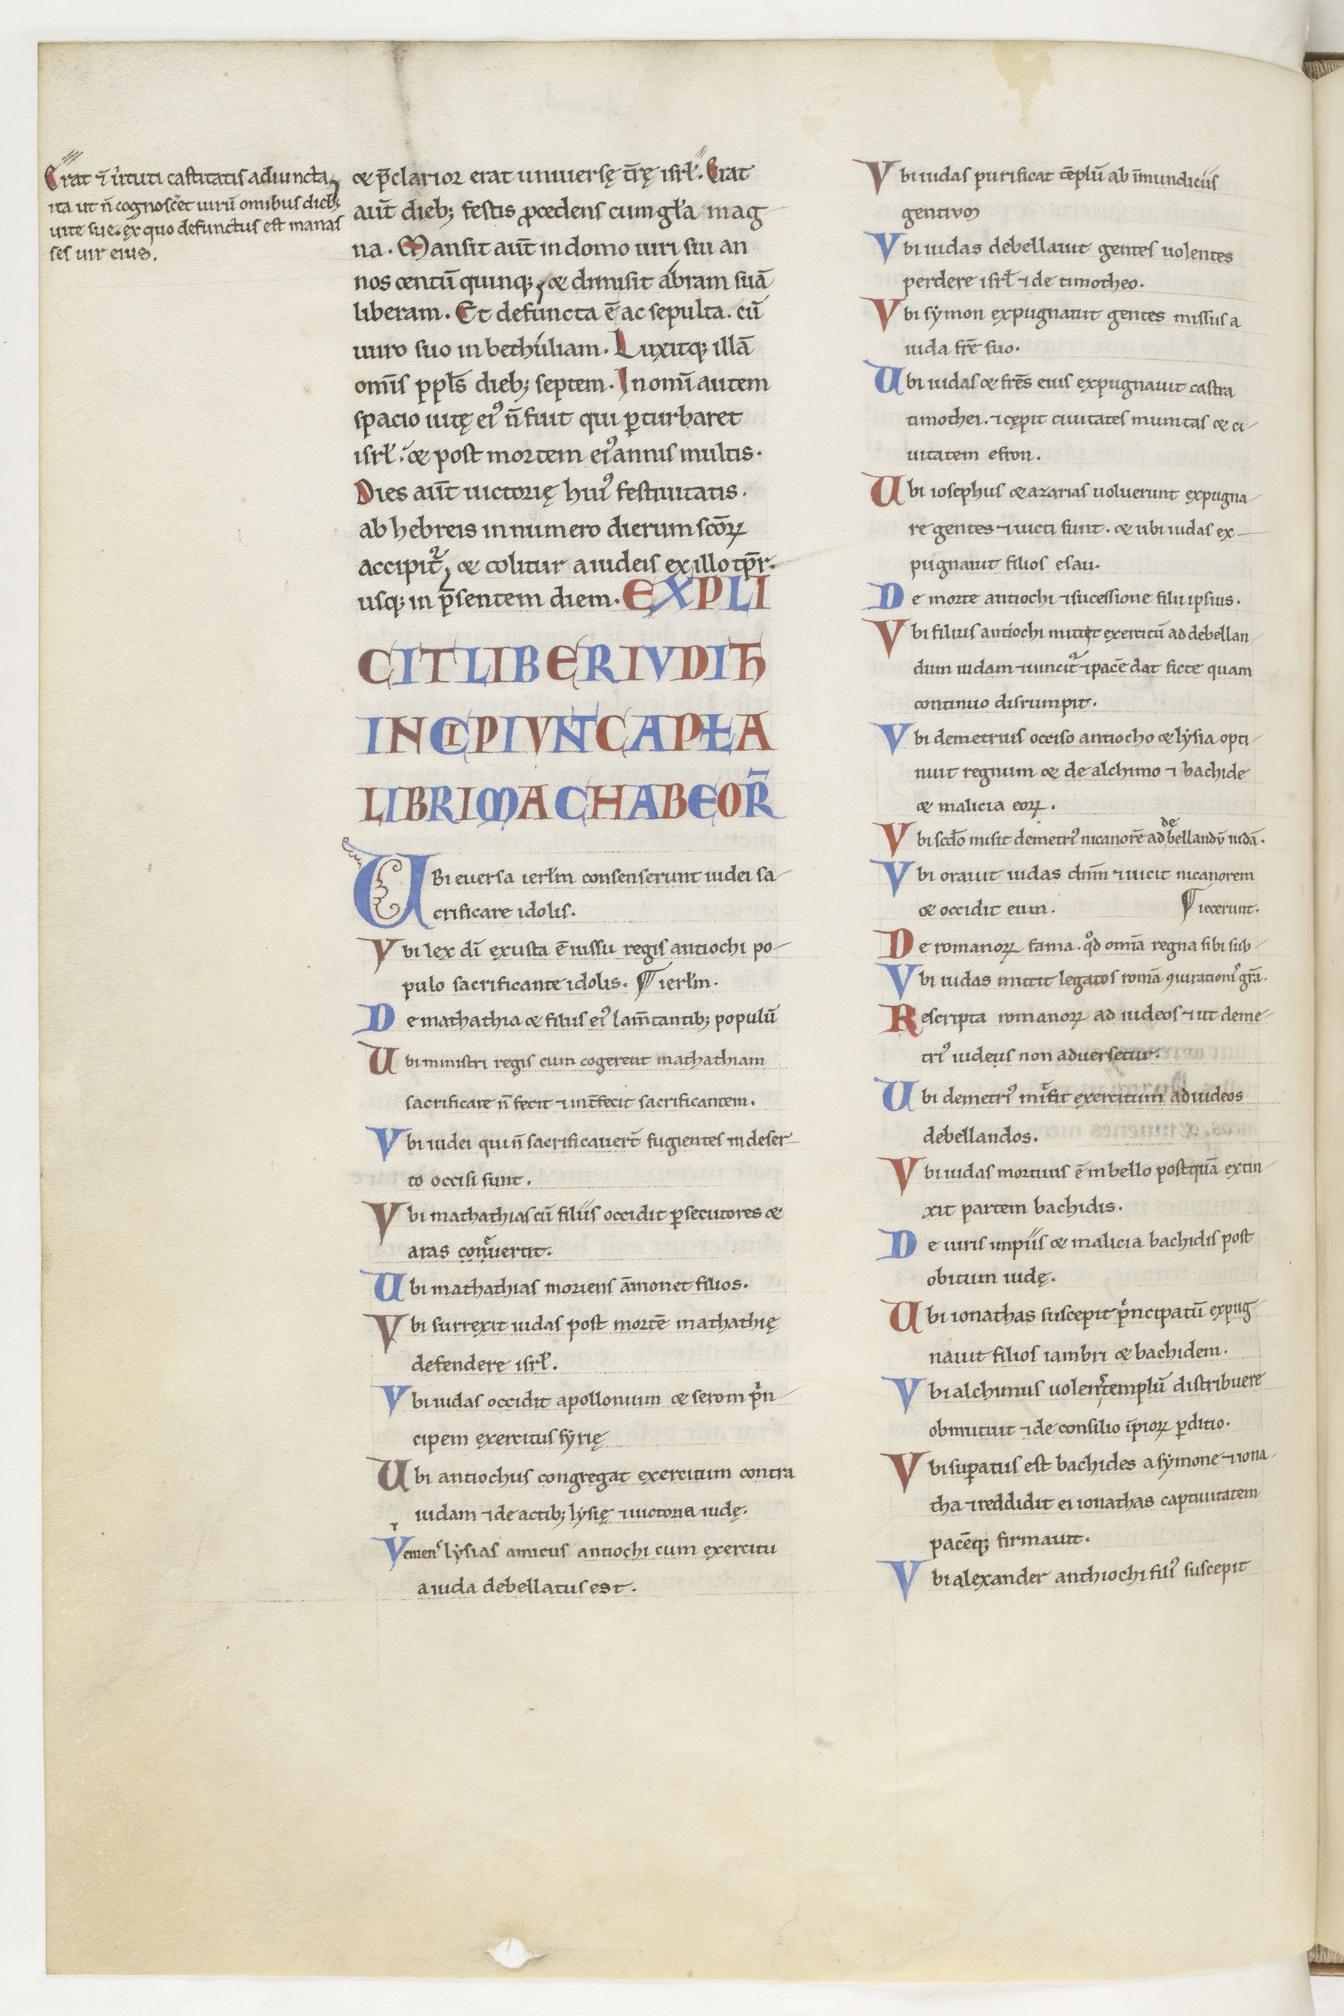 Erat & uirtuti castitatis adiuncta,
ita ut ñ cognosc̃et uirũ omibus dieb;
uite sue. ex quo defunctus est manas
ses uir eius.
& p̄clarior erat uniuersę t̄rę isrł. Erat
aut̄ dieb; festis p̄cedens cum gła mag
na. Mansit aut̄ in domo uiri sui an
nos centũ quinq; & dimisit abram suã
liberam. Et defuncta ē ac sepulta. cũ
uiro suo in bethuliam. Luxitq; illã
omīs pplś dieb; septem. In omī autem
spacio uitę ei⁹ ñ fuit qui p̱turbaret
isrł. & post mortem ei⁹ annis multis.
Dies aut̄ uictorię hui⁹ festiuitatis.
ab hebreis in numero dierum sc̄oꝝ
accipit᷑, & colitur a iudeis ex illo tp̄r.
usq; in p̄sentem diem. EXPLI
CIT LIBER IVDITH
INCIPIVNT CAPŁA
LIBRI MACHABEOR̃
UBi euersa ierłm consenserunt iudei sa-
crificare idolis.
Vbi lex dī exusta ē iussu regis antiochi po-
pulo sacrificante idolis. ¶ ierłm.
De mathathia & filiis ei⁹ lam̄tantib; populũ
Ubi ministri regis cum cogerent mathathiam
sacrificare ñ fecit ⁊ int̄fecit sacrificantem.
Vbi iudei qui ñ sacrificauer̄t fugientes in deser-
to occisi sunt.
Vbi mathathias cũ filiis occidit p̱secutores &
aras conuertit.
Ubi mathathias moriens āmonet filios.
Vbi surrexit iudas post mortē mathathię
defendere isrł.
Vbi iudas occidit apollonium & serom p̄n-
cipem exercitus syrię
Ubi antiochus congregat exercitum contra
iudam ⁊ de actib; lysię ⁊ uictoria iudę.
Vt ueniens lysias amicus antiochi cum exercitu
a iuda debellatus est.
Vbi iudas purificat tēplũ ab īmundiciis
gentium
Vbi iudas debellauit gentes uolentes
perdere isrł ⁊ de timotheo.
Vbi symon expugnauit gentes missus a
iuda frē suo.
Ubi iudas & frēs eius expugnauit castra
timothei. ⁊ cępit ciuitates munitas & ci-
uitatem efron.
Ubi iosephus & azarias uoluerunt expugna-
re gentes ⁊ uicti sunt. & ubi iudas ex-
pugnauit filios esau.
De morte antiochi ⁊ sucessione filii ipsius.
Vbi filius antiochi mittit exercitũ ad debellan-
dum iudam ⁊ uincit᷑ ⁊ pacē dat ficte quam
continuo disrumpit.
Vbi demetrius occiso antiocho & lysia opti-
nuit regnum & de alchimo ⁊ bachide
& malicia eoꝝ.
Vbi scd̄o misit demetri⁹ nicanorē ad debellandũ iudã.
Vbi orauit iudas dn̄m ⁊ uicit nicanorem
& occidit eum. ¶ iecerunt.
De romanoꝝ fama. qd̄ omīa regna sibi sub-
Vbi iudas mittit legatos romã ꝯiurationis grã.
Rescripta romanoꝝ ad iudeos ⁊ ut deme-
tri⁹ iudeis non aduersetur.
Ubi demetri⁹ misit exercitum ad iudeos
debellandos.
Vbi iudas mortuus ē in bello postquã extin-
xit partem bachidis.
De uiris impiis & malicia bachidis post
obitum iudę.
Ubi ionathas suscepit p̄ncipatũ expug-
nauit filios iambri & bachidem.
Vbi alchimus uolens templũ distribuere
obmutuit ⁊ de consilio īpioꝝ p̱ditio.
Vbi sup̱atus est bachides a symone ⁊ iona-
tha ⁊ reddidit ei ionathas captiuitatem
pacēq; firmauit.
Vbi alexander anthiochi fili⁹ suscepit